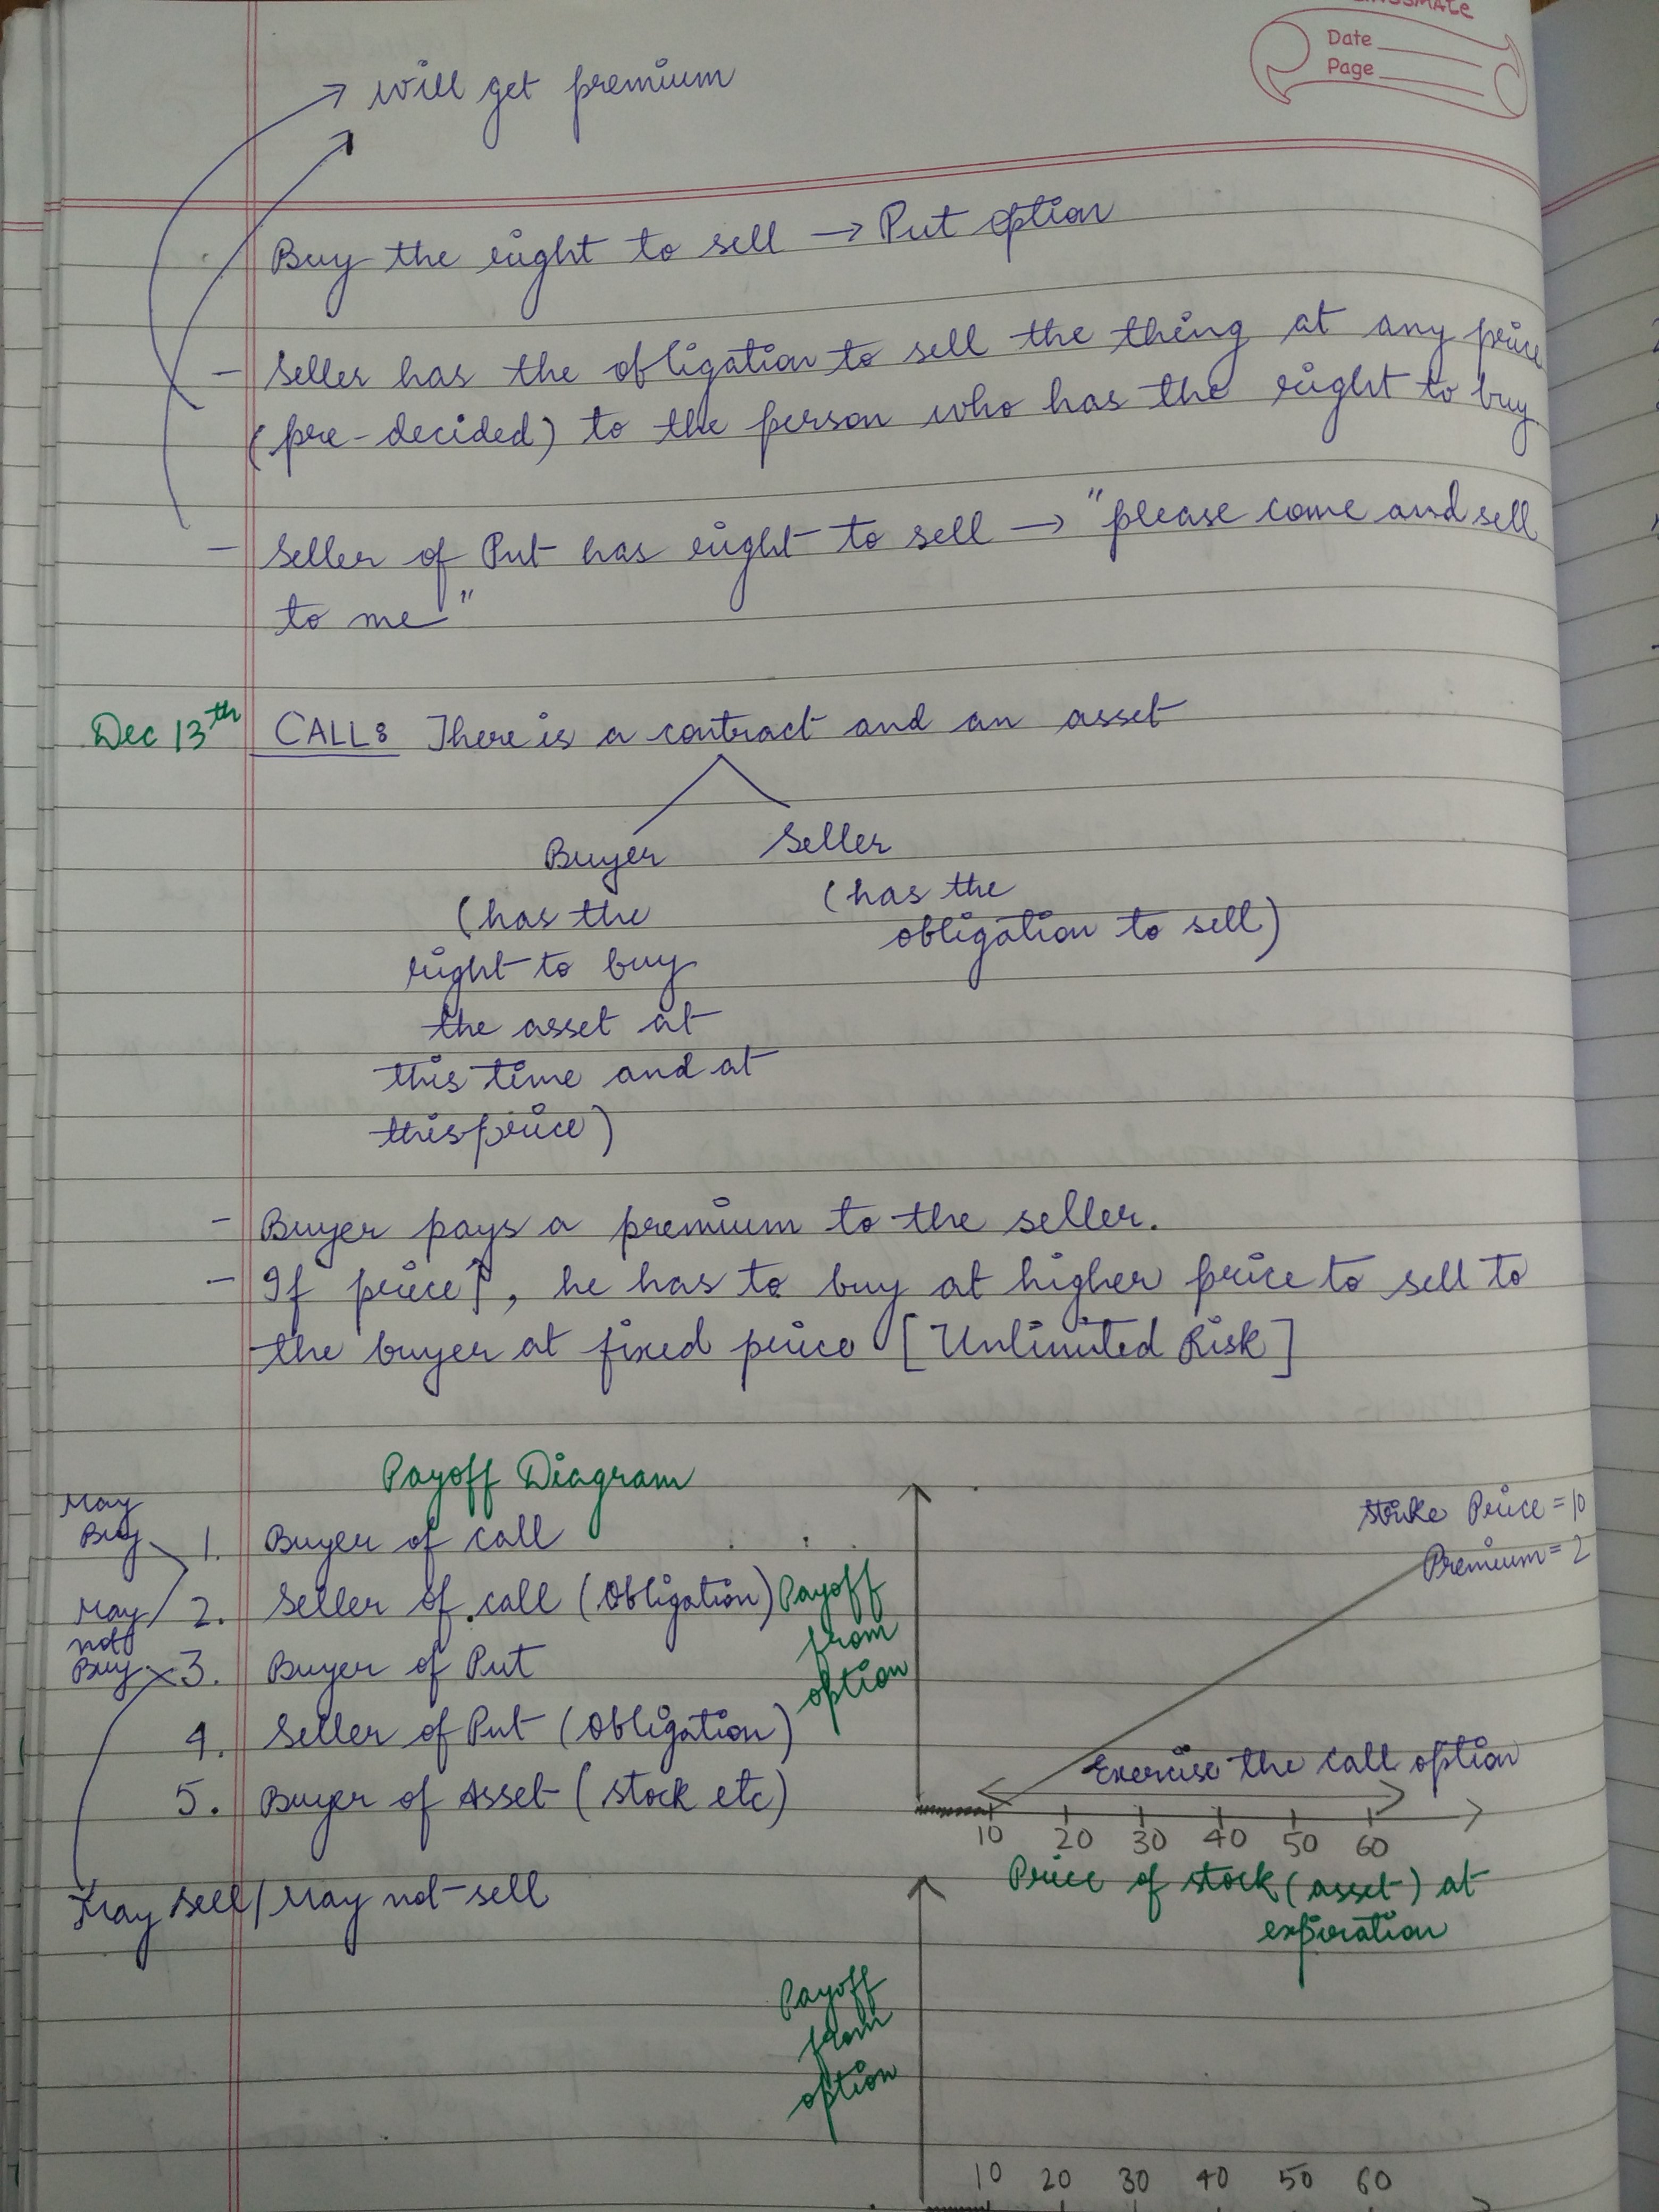 Date
Page
will get premium
Buy the right to sell → Put option
- Seller has the obligation to sell the thing at any price
(pre-decided) to the person who has the right to buy
- Seller of Put has right to sell → "please come and sell
to me"
Dec 13th CALL: There is a contract and an asset
Buyer Seller
(has the
right to buy
the asset at
this time and at
this price)
(has the
obligation to sell)
- Buyer pays a premium to the seller.
- If price↑, he has to buy at higher price to sell to
the buyer at fixed price [Unlimited Risk]
Payoff Diagram
May
Buy
May
not
Buy
1. Buyer of call
2. Seller of call (Obligation)
3. Buyer of Put
4. Seller of Put (Obligation)
5. Buyer of Asset (stock etc)
May Sell/May not sell
Strike Price = 10
Premium = 2
Payoff
from
option
Exercise the call option
10 20 30 40 50 60
Price of stock (asset) at
expiration
Payoff
from
option
10 20 30 40 50 60